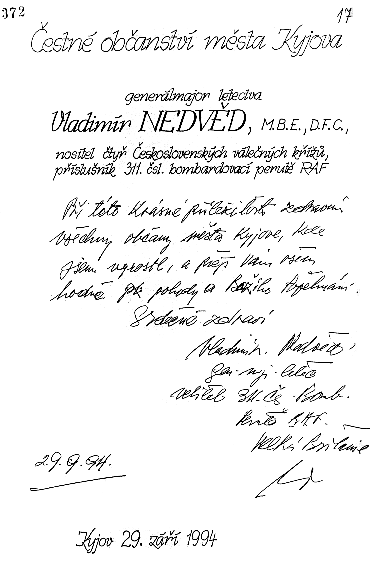 372
17
Čestné občanství města Kyjova
generálmajor letectva
Vladimír NEDVĚD, M.B.E., D.F.C.,
nositel čtyř Československých válečných křížů,
příslušník 311. čsl. bombardovací perutě RAF
Při této krásné příležitosti zdravím
všechny občany města Kyjova, kde
jsem vyrostl, a přeji Vám všem
hodně pohody a Božího Požehnání.
Srdečně zdraví
Vladimír Nedvěd
gen. mj. letec
velitel 311. Čs. Bomb.
Perutě RAF.
Velká Britanie
29.9.94.
Kyjov 29. září 1994